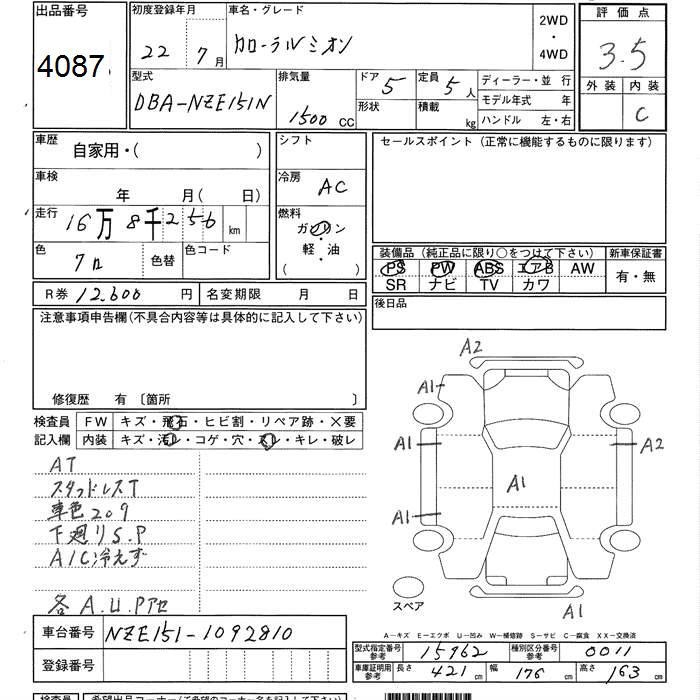 出品番号
4087
初度登録年月
22年 7月
車名・グレード
カローラルミオン
2WD
・
4WD
評価点
3.5
外装 内装
C
型式
DBA-NZE151N
排気量
1500 CC
ドア 5
形状
定員 5人
積載 kg
ディーラー・並行
モデル年式 年
ハンドル 左・右
車歴
自家用・( )
シフト
セールスポイント (正常に機能するものに限ります)
車検
年 月( 日)
冷房
AC
走行
16万8千256 km
燃料
ガソリン
・
軽・油
( )
色
クロ
色替
色コード
装備品 (純正品に限り○をつけて下さい)
新車保証書
PS PW ABS エアB AW
有・無
SR ナビ TV カワ
R券 12,600 円
名変期限 月 日
後日品
注意事項申告欄(不具合内容等は具体的に記入して下さい)
修復歴 有 〔箇所 〕
検査員
記入欄
FW キズ・飛石・ヒビ割・リペア跡・×要
内装 キズ・汚レ・コゲ・穴・スレ・キレ・破レ
AT
スタッドレスT
車色209
下廻りS.P
A/C冷えず
各A.U.Pアセ
A2
A1
A1
A2
A1
A1
A1
スペア
A―キズ E―エクボ U―凹み W―補修跡 S―サビ C―腐食 XX―交換済
車台番号
NZE151-1092810
登録番号
型式指定番号
参考
15962
種別区分番号
参考
0011
車庫証明用
参考
長さ 421 cm
幅 176 cm
高さ 163 cm
検査員
希望出品コーナー